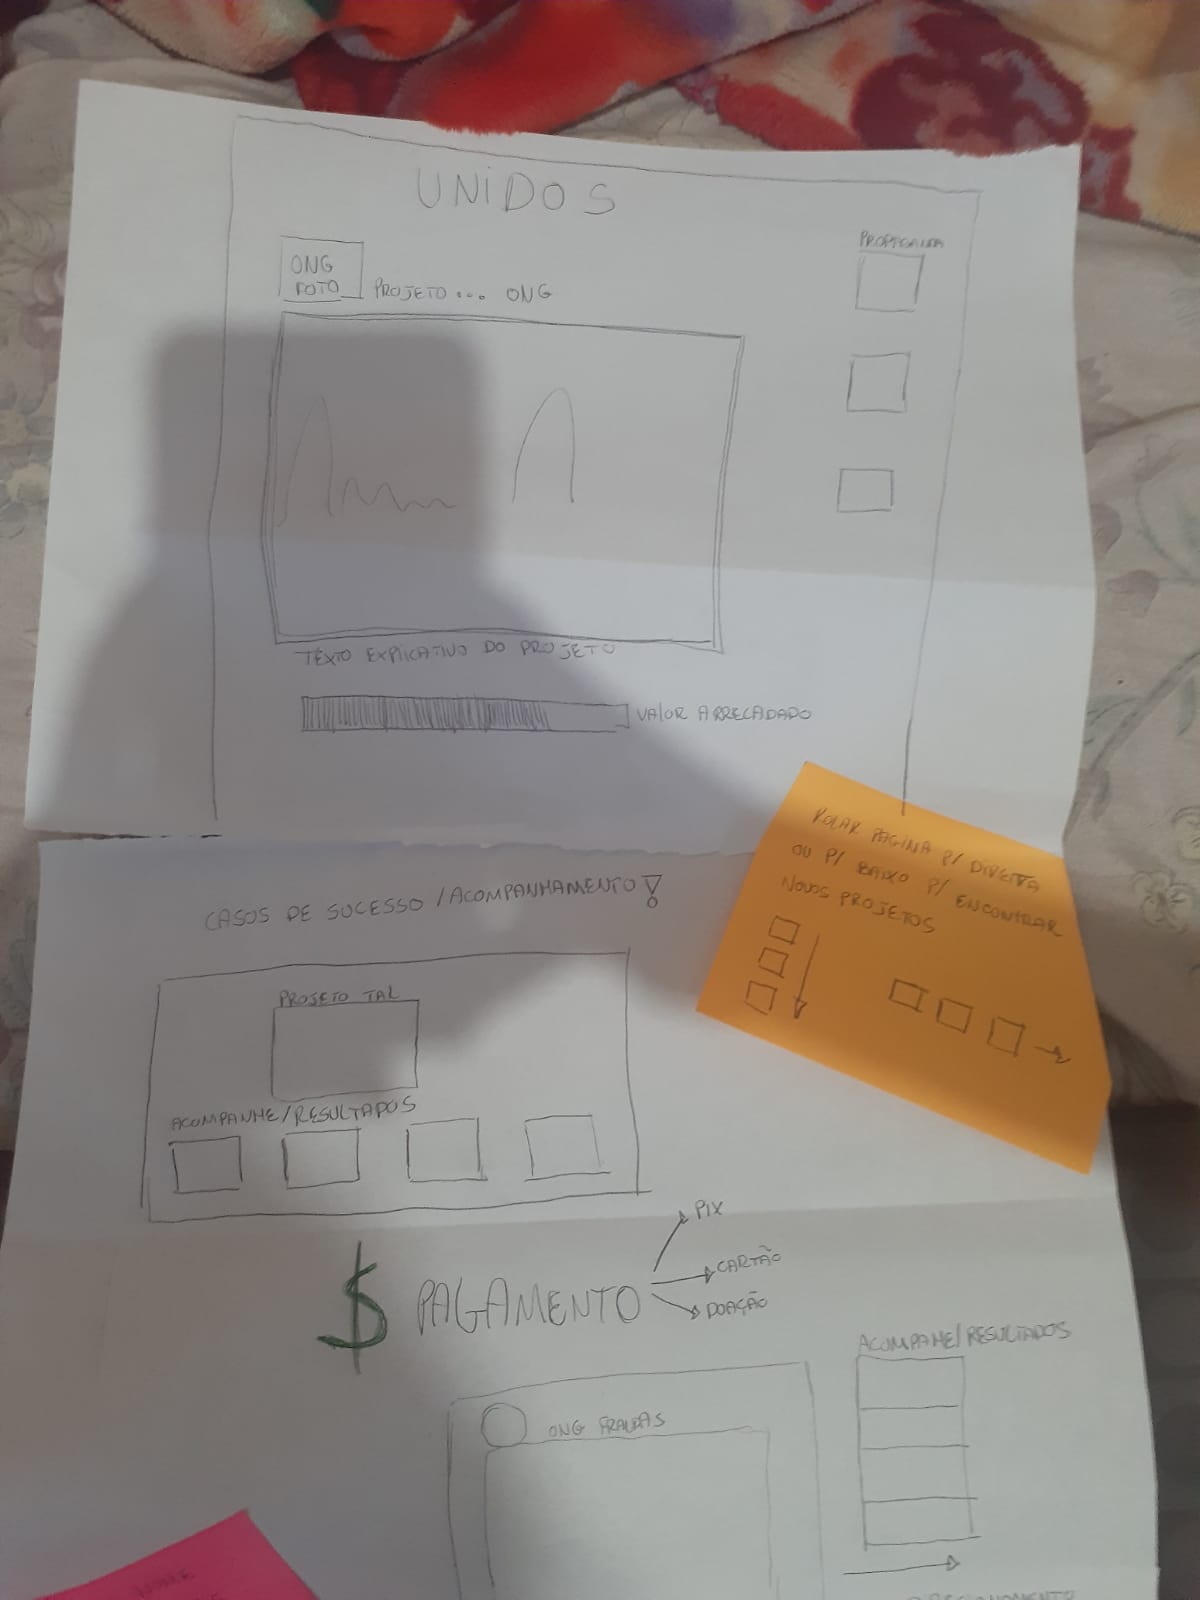 UNIDOS
ONG
FOTO
PROJETO... ONG
TEXTO EXPLICATIVO DO PROJETO
VALOR ARRECADADO
ROLAR PAGINA P/ DIREITA
OU P/ BAIXO P/ ENCONTRAR
NOVOS PROJETOS
CASOS DE SUCESSO / ACOMPANHAMENTO!
PROJETO TAL
ACOMPANHE/RESULTADOS
$ PAGAMENTO
PIX
CARTÃO
DOAÇÃO
ACOMPANHE/RESULTADOS
ONG